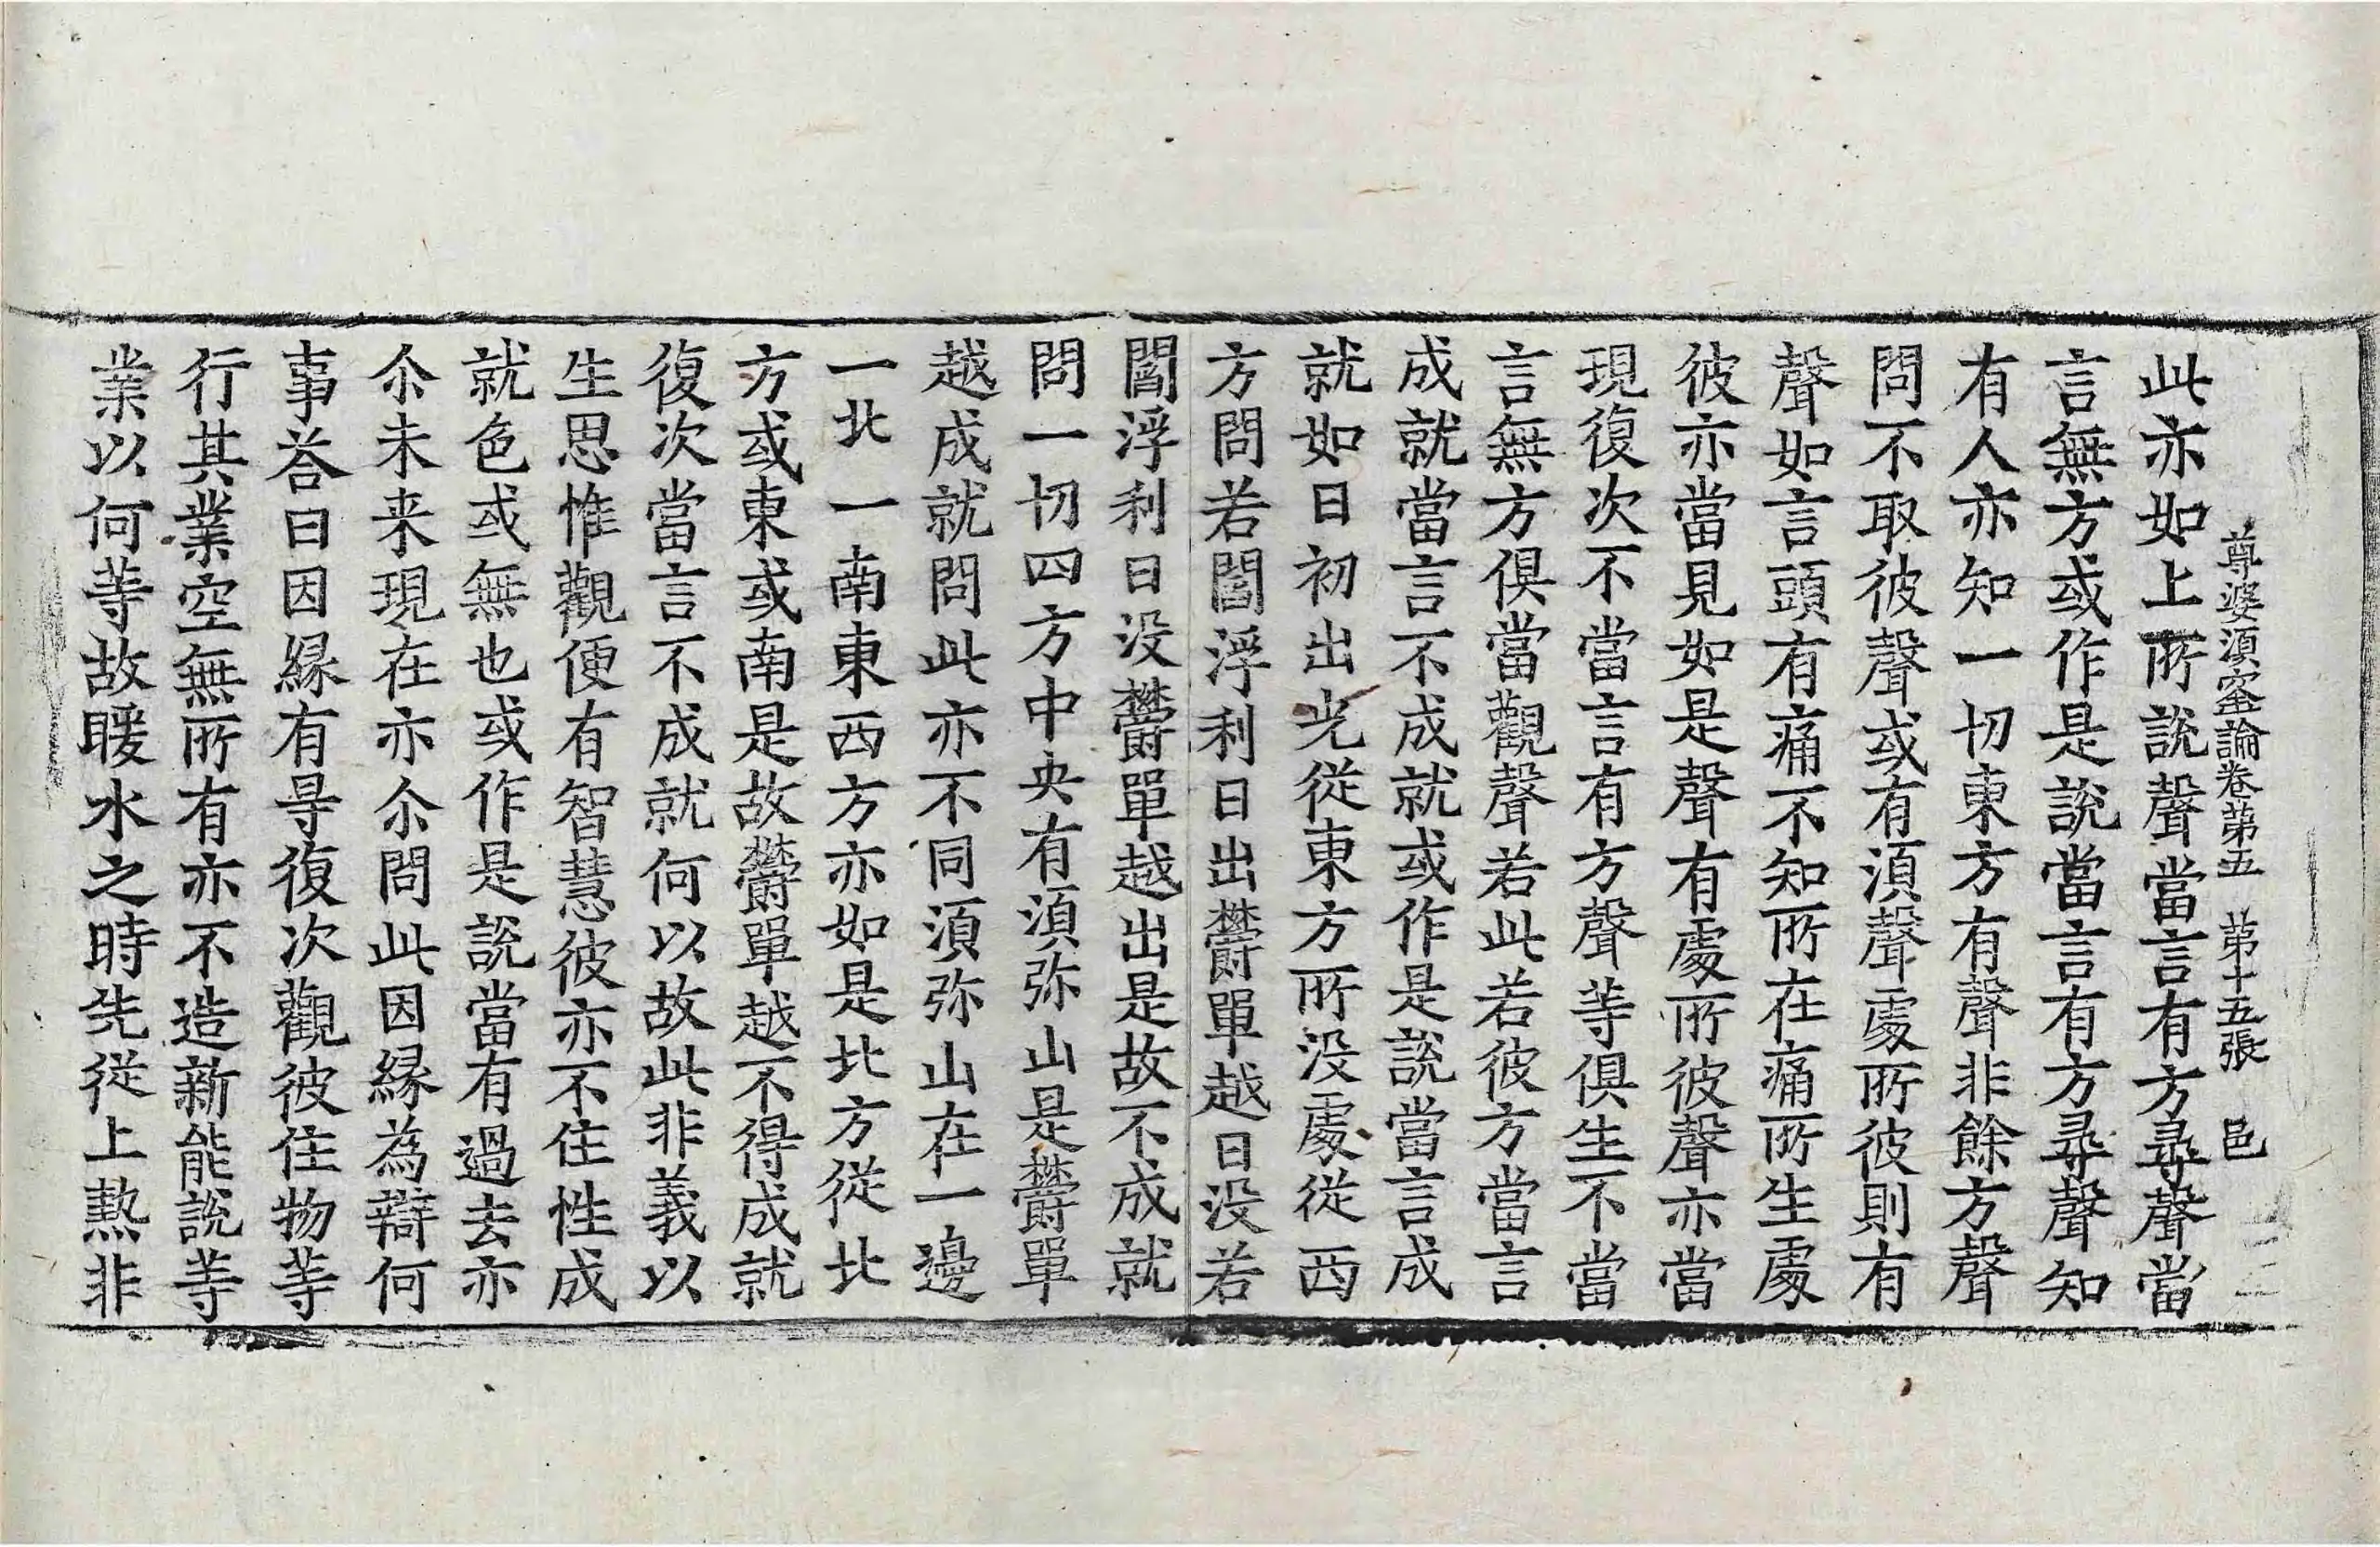 尊婆須蜜論卷第五　第十五張　邑
此亦如上所說聲當言有方尋聲當
言無方或作是說當言有方尋聲知
有人亦知一切東方有聲非餘方聲
問不取彼聲或有須聲處所彼則有
聲如言頭有痛不知所在痛所生處
彼亦當見如是聲有處所彼聲亦當
現復次不當言有方聲等俱生不當
言無方俱當觀聲若此若彼方當言
成就當言不成就或作是說當言成
就如日初出光從東方所没處從西
方問若閻浮利日出欝單越日没若
閻浮利日没欝單越出是故不成就
問一切四方中央有須弥山是欝單
越成就問此亦不同須弥山在一邊
一北一南東西方亦如是北方從北
方或東或南是故欝單越不得成就
復次當言不成就何以故此非義以
生思惟觀便有智慧彼亦不住性成
就色或無也或作是說當有過去亦
尒未来現在亦尒問此因緣為辯何
事荅曰因緣有㝵復次觀彼住物等
行其業空無所有亦不造新能說等
業以何等故暖水之時先從上熱非